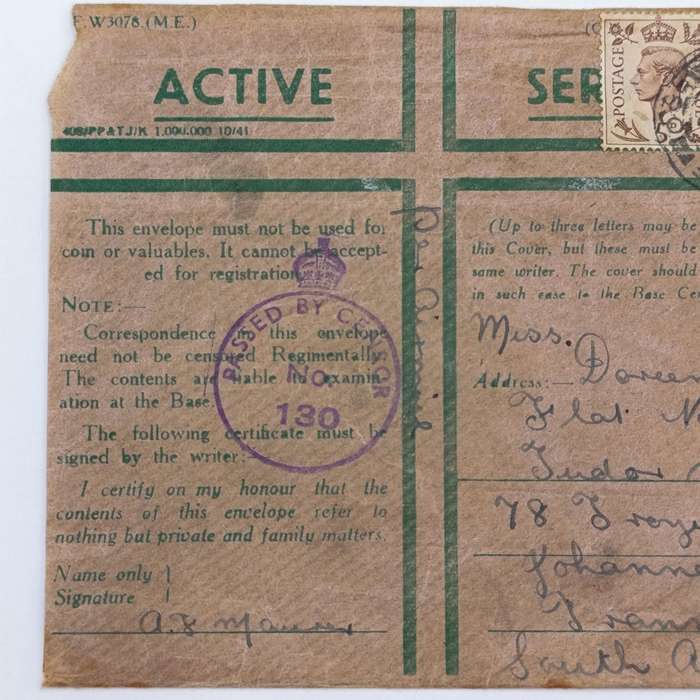 F. W3078.(M.E.)
ACTIVE
SER
POSTAGE
408/PP&TJ/K 1,000,000 10/41
This envelope must not be used for
coin or valuables. It cannot be accept-
ed for registration.
NOTE:—
Correspondence in this envelope
need not be censored Regimentally.
The contents are liable to examin-
ation at the Base.
The following certificate must be
signed by the writer:—
I certify on my honour that the
contents of this envelope refer to
nothing but private and family matters.
Name only
Signature
PASSED BY CENSOR
No.
130
(Up to three letters may be
this Cover, but these must be
same writer. The cover should
in such case to the Base Cen
Miss.
Address:— Doreen
Flat N
Tudor
78
Johanne
Trans
South A